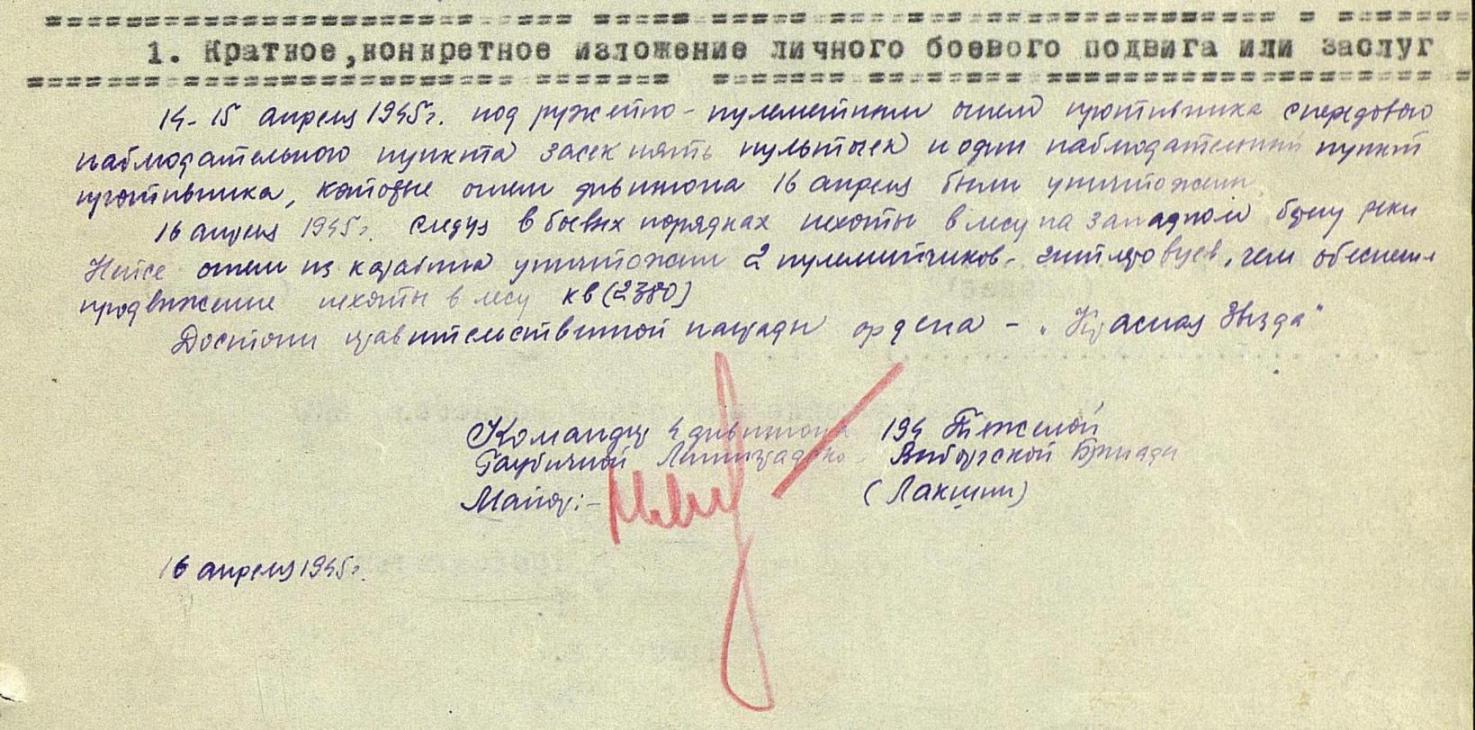 1. Краткое,конкретное изложение личного боевого подвига или заслуг
14-15 апреля 1945г. под ружейно-пулеметным огнем противника с передового
наблюдательного пункта засек пять пультычек и один наблюдательный пункт
противника, которые огнем дивизиона 16 апреля были уничтожены
16 апреля 1945г. следуя в боевых порядках пехоты в лесу на западном берегу реки
Нейсе огнем из карабина уничтожил 2 пулеметчиков-гитлеровцев, чем обеспечил
продвижение пехоты в лесу кв (2380)
Достоин правительственной награды ордена - "Красная Звезда"
Командир 4 дивизиона 194 Тяжелой
Гаубичной Ленинградско-Выборгской Бригады
Майор:- (Лакшин)
16 апреля 1945г.